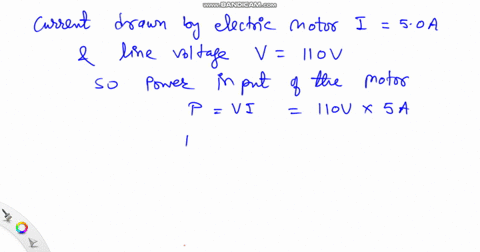 WWW.BANDICAM.COM
Current drawn by electric motor I = 5.0A
& line voltage V = 110V
so Power input of the motor
P = VI = 110V × 5A